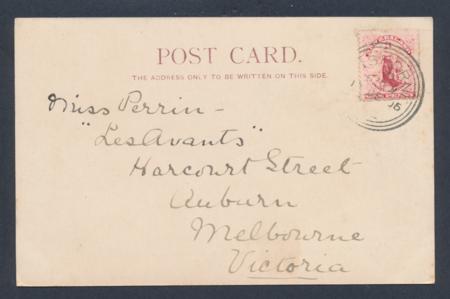 POST CARD.
THE ADDRESS ONLY TO BE WRITTEN ON THIS SIDE.
Miss Perrin -
"Les Avants"
Harcourt Street
Auburn
Melbourne
Victoria